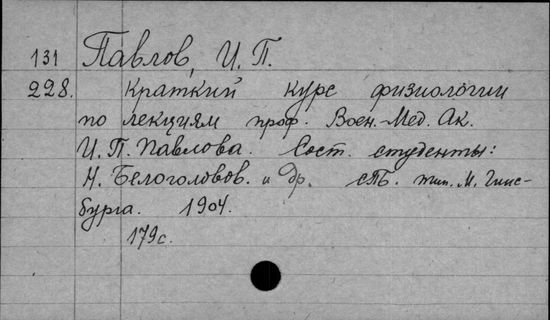 131 Павлов, И. П.
228. Краткий курс физиологии
по лекциям проф. Воен.-Мед. Ак.
И. П. Павлова. Сост. студенты:
Н. Белоголовов. и др. СПб. тип. М. Гинс-
бурга. 1904.
179 с.